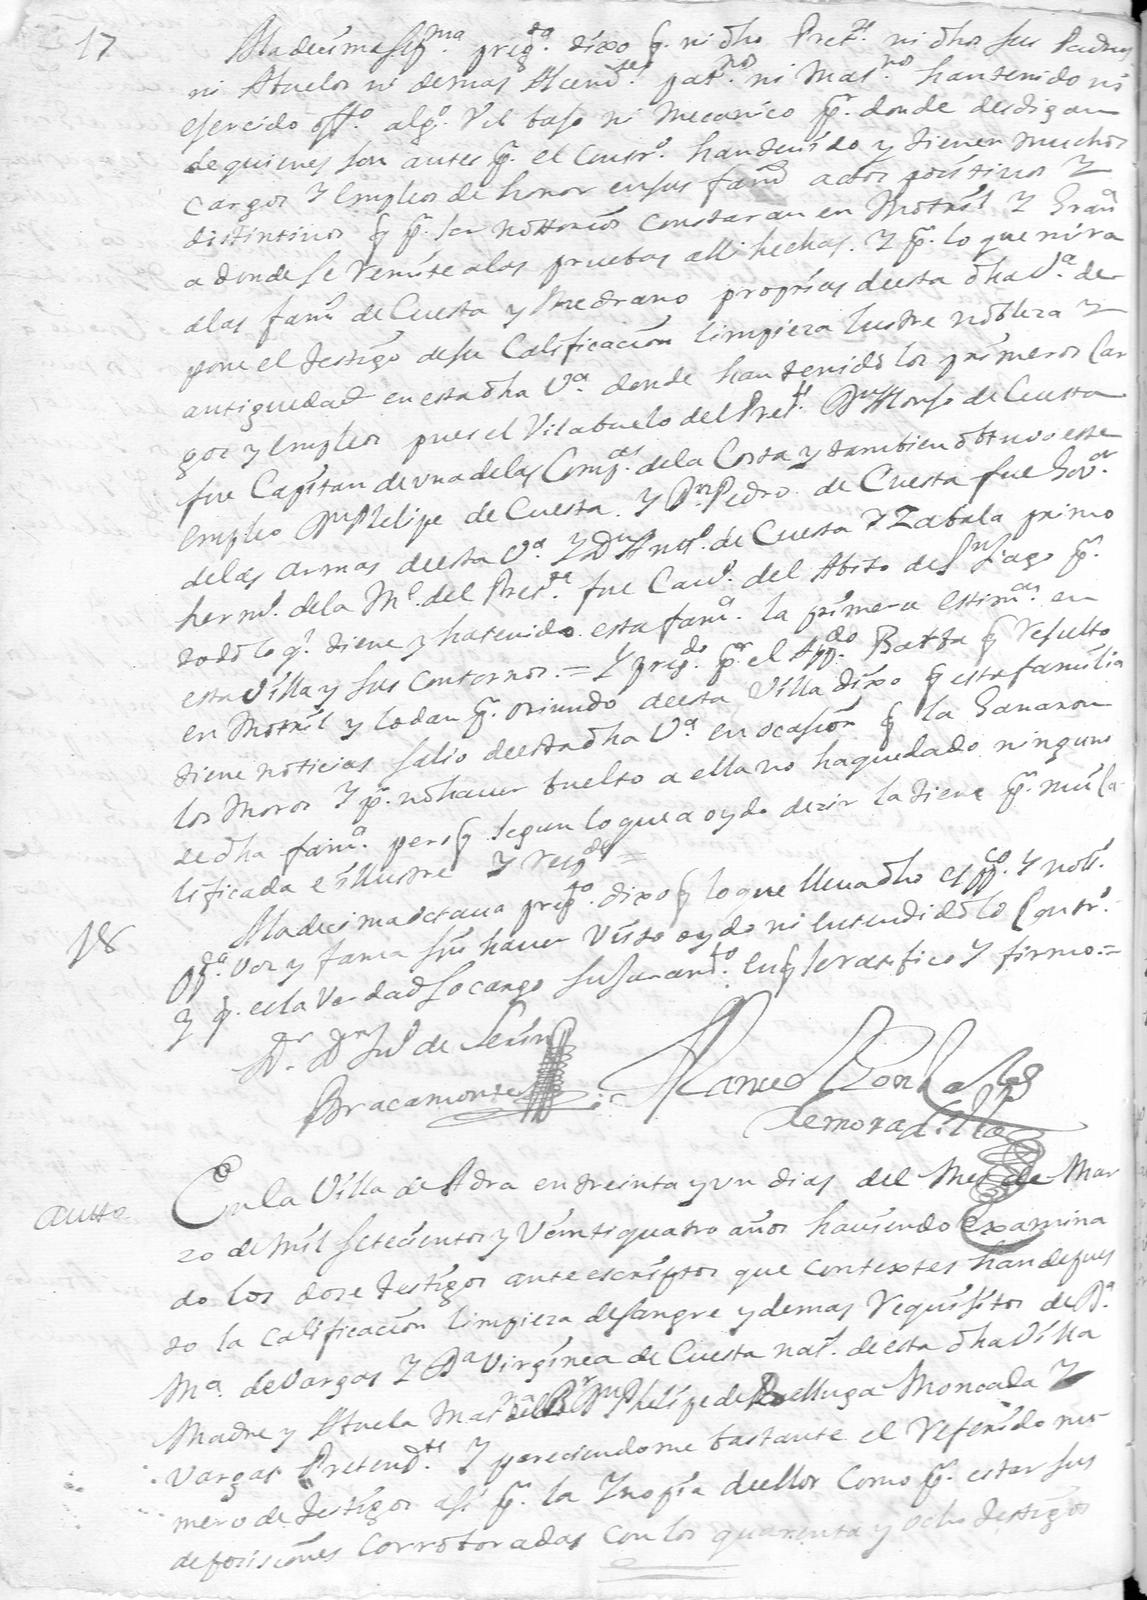 17 Aladecimasepma. pregta. dixo q. ni dho Prette. ni dhos sus Padres
ni Abuelos ni demas Ascendtes. patnos. ni Matnos. hantenido ni
ejercido offo. algo. Vil bajo ni mecanico pr. donde desdigan
dequienes son antes pr. el contro. hantenido y tienen muchos
cargos y Empleos de honor ensus fams. actos positivos y
distintivos q pr. ser nottorios constaran en Motril y Grana
adonde se remite alas pruebas alli hechas. Y pr. lo que mira
alas fams. de Cuesta y Medrano proprias deesta dha Va. de
pone el testigo desu Calificacion limpieza lustre nobleza y
antiguedad enesta dha Va. donde hantenido los primeros Car
gos y Empleos pues el Visabuelo del Prett. Dn. Alonso de Cuesta
fue Capitan de una delas Compas. dela Costa y tambien obtuvo este
empleo Dn Phelipe de Cuesta. Y Dn. Pedro de Cuesta fue Govor.
delas armas deesta Va. Y Dn Anto. de Cuesta y Zabala primo
hermo. dela Me. del Prette. fue Cavo. del Abito de Sn Tiago pr.
todo lo q. tiene y hatenido esta fama. la primera estimon. en
esta Villa y sus contornos. = Y pregdo. pr el Appdo. Batta q resulto
en Motril y lodan pr. oriundo deesta Villa dixo q esta familia
tiene noticias salio deesta dha Va. en ocasion q la Ganaron
los Moros Y pr. no haver buelto a ella no haquedado ninguno
de dha fama. pero q segun lo que a oydo dezir la tiene pr. mui Ca
lificada e illustre Y respde =
18 Aladecimaoctava pregta. dixo q lo que lleva dho es ppco. Y nott.
ppca. voz y fama sin haver visto oydo ni entendido lo Contro.
Y q. es la Verdad so cargo su juramto. enq se ratifico Y firmo =
Dr. Dn Juo de Leiva
Bracamonte
Manuel Gonzales
demoradilla
autto En la Villa de Adra entreinta y un dias del Mes de Mar
zo de mil Setecientos y Veintiquatro años haviendo examina
do los doze testigos anteescriptos que contextes handepues
to la calificacion limpieza desangre y demas requisitos de Da.
Ma. de Vargas Y Da Virginea de Cuesta nats. de esta dha Villa
Madre y Abuela Matna del Br Dn Phelipe de Belluga Moncada Y
Vargas Pretendte. Y pareciendome bastante el referido nu
mero de testigos asi pr. la Ynopia deellos como pr. estar sus
deposiciones corroboradas con los quarenta y ocho testigos